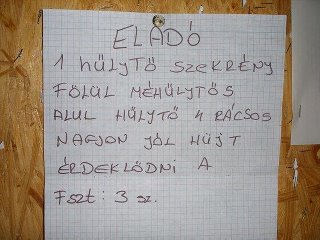 ELADÓ
1 HŰLYTŐ SZEKRÉNY
FÖLÜL MÉHŰLYTŐS
ALUL HŰLYTŐ 4 RÁCSOS
NAGJON JÓL HŰJT
ÉRDEKLŐDNI A
Fszt: 3 sz.